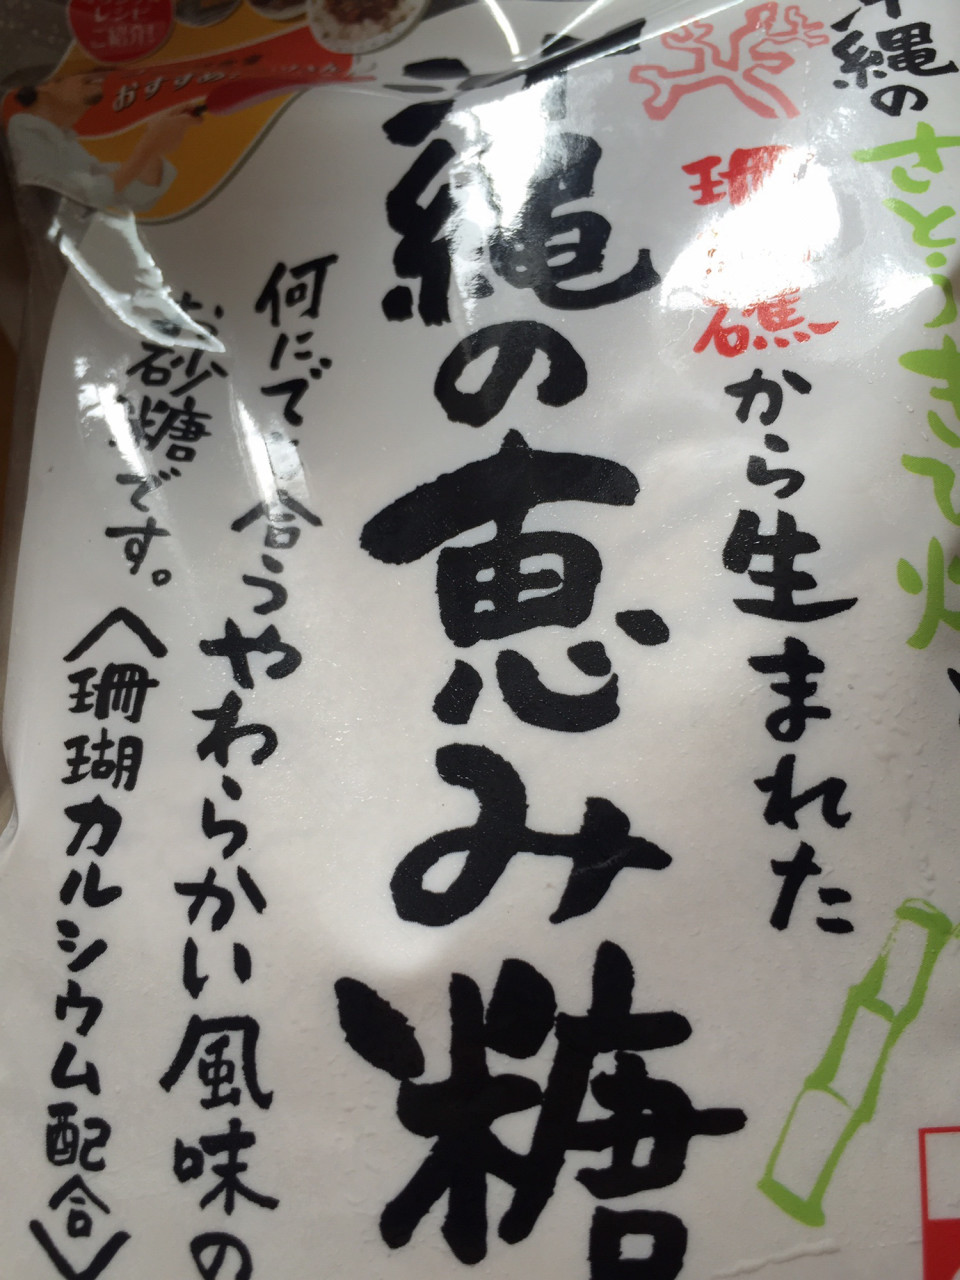 沖縄の
さとうきび
珊瑚礁
から生まれた
沖縄の恵み糖
何にでも合うやわらかい風味の
お砂糖です。
〈珊瑚カルシウム配合〉
レシピ
ご紹介!
おすすめ